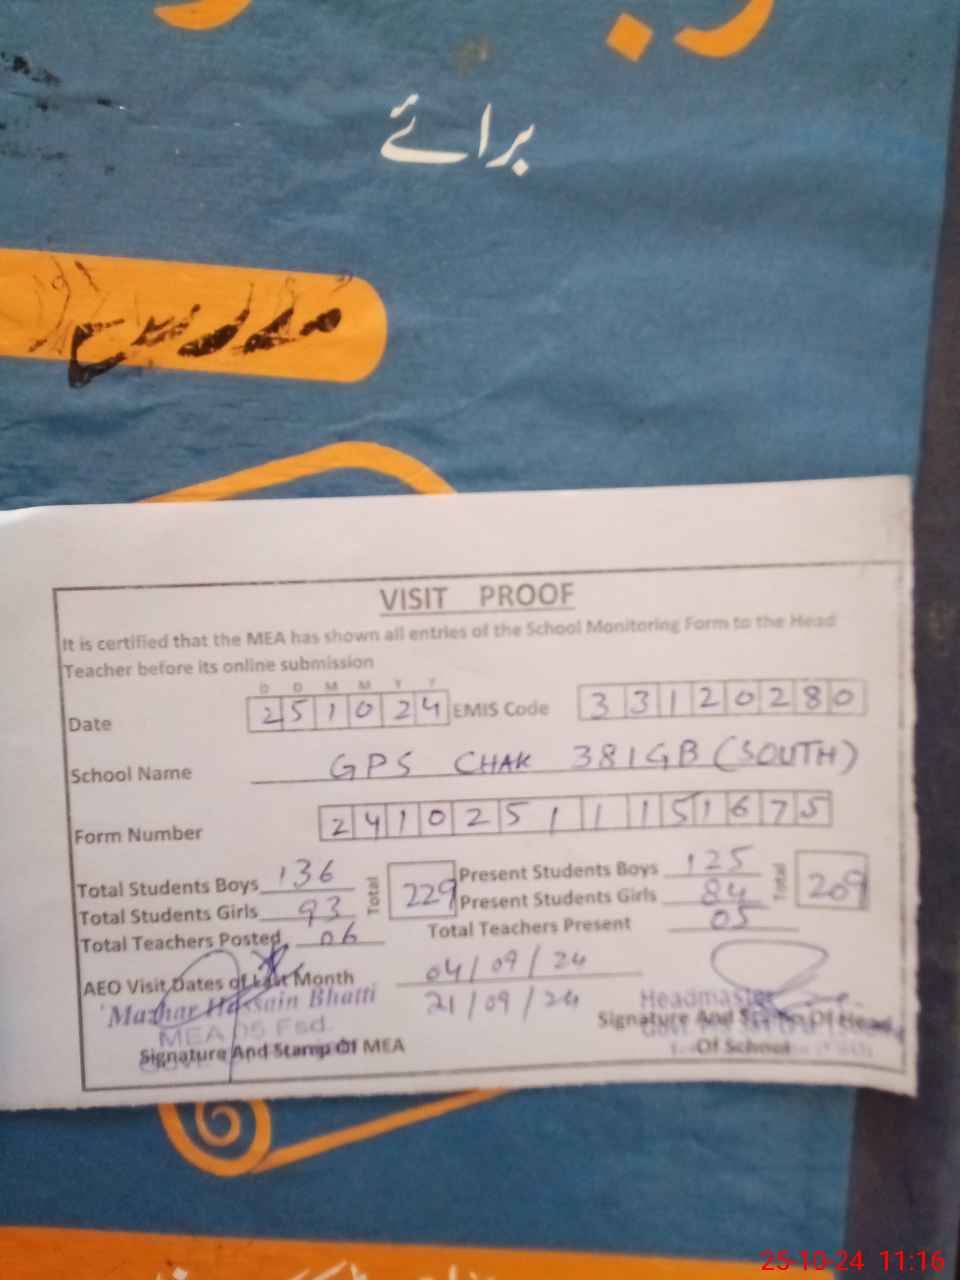 برائے
مدرسے
VISIT PROOF
It is certified that the MEA has shown all entries of the School Monitoring Form to the Head
Teacher before its online submission
D D M M Y Y
Date 251024 EMIS Code 33120280
School Name GPS CHAK 381GB (SOUTH)
Form Number 241025111151675
Total Students Boys 136 Total 229 Present Students Boys 125 Total 209
Total Students Girls 93 Present Students Girls 84
Total Teachers Posted 06 Total Teachers Present 05
AEO Visit Dates of Last Month 04/09/24
21/09/24
Mazhar Hassain Bhatti
MEA 05 Fsd.
Signature And Stamp Of MEA
Headmaster
Signature And Stamp Of Head
Of School
25-10-24 11:16